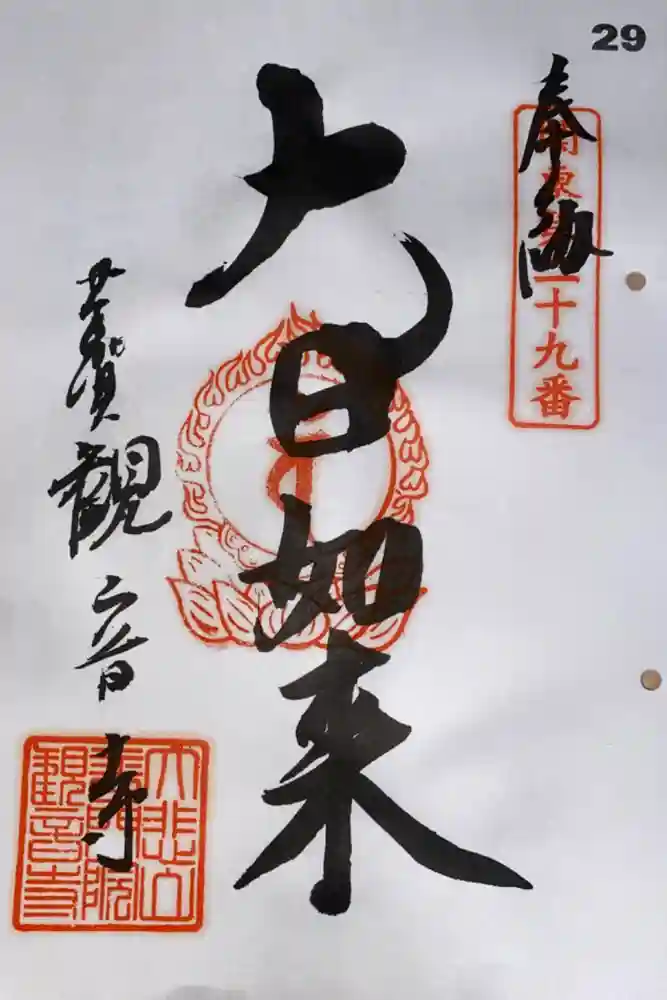 29
奉納
関東第二十九番
大日如来
芳賀観音寺
大悲山
普門院
観音寺